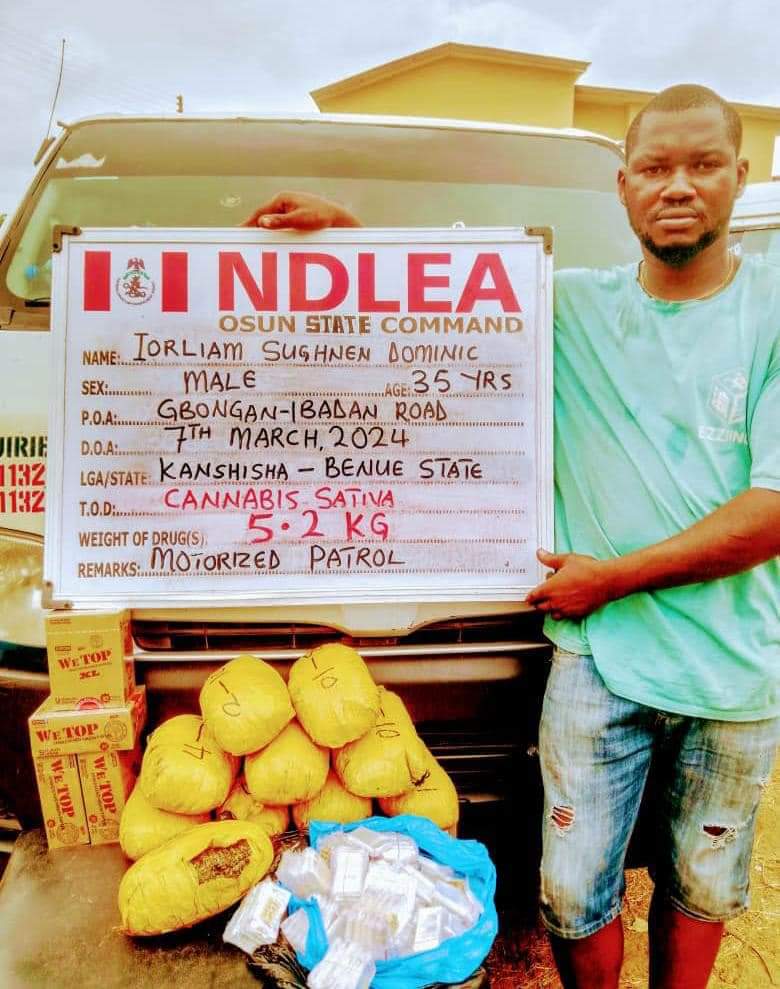 NDLEA
OSUN STATE COMMAND
NAME: IORLIAM SUGHNEN DOMINIC
SEX: MALE AGE: 35 YRS
P.O.A: GBONGAN-IBADAN ROAD
D.O.A: 7TH MARCH, 2024
LGA/STATE: KANSHISHA - BENUE STATE
T.O.D: CANNABIS SATIVA
WEIGHT OF DRUG(S) 5.2 KG
REMARKS: MOTORIZED PATROL
UIRIE
1132
1132
WE TOP
XL
WE TOP
WE TOP
WE TOP